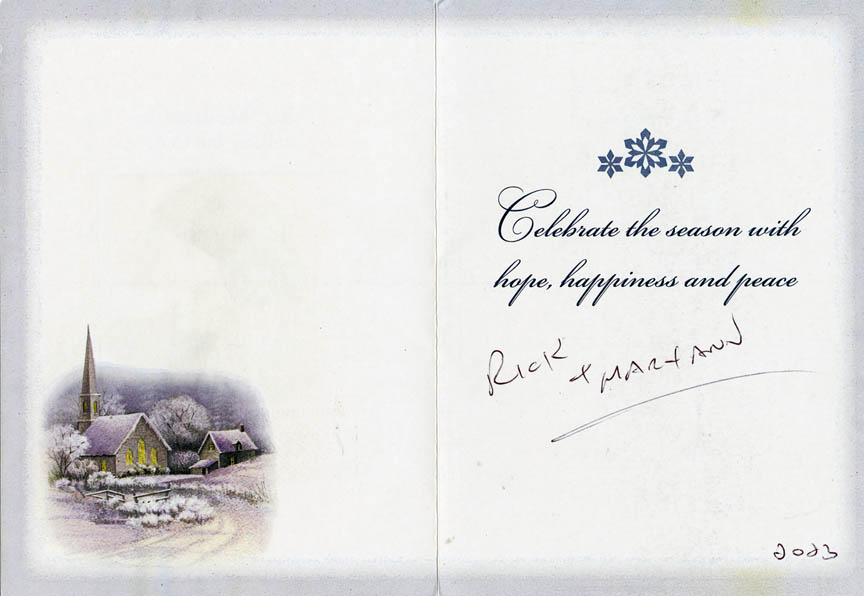 Celebrate the season with
hope, happiness and peace
RICK
& MARYANN
2023